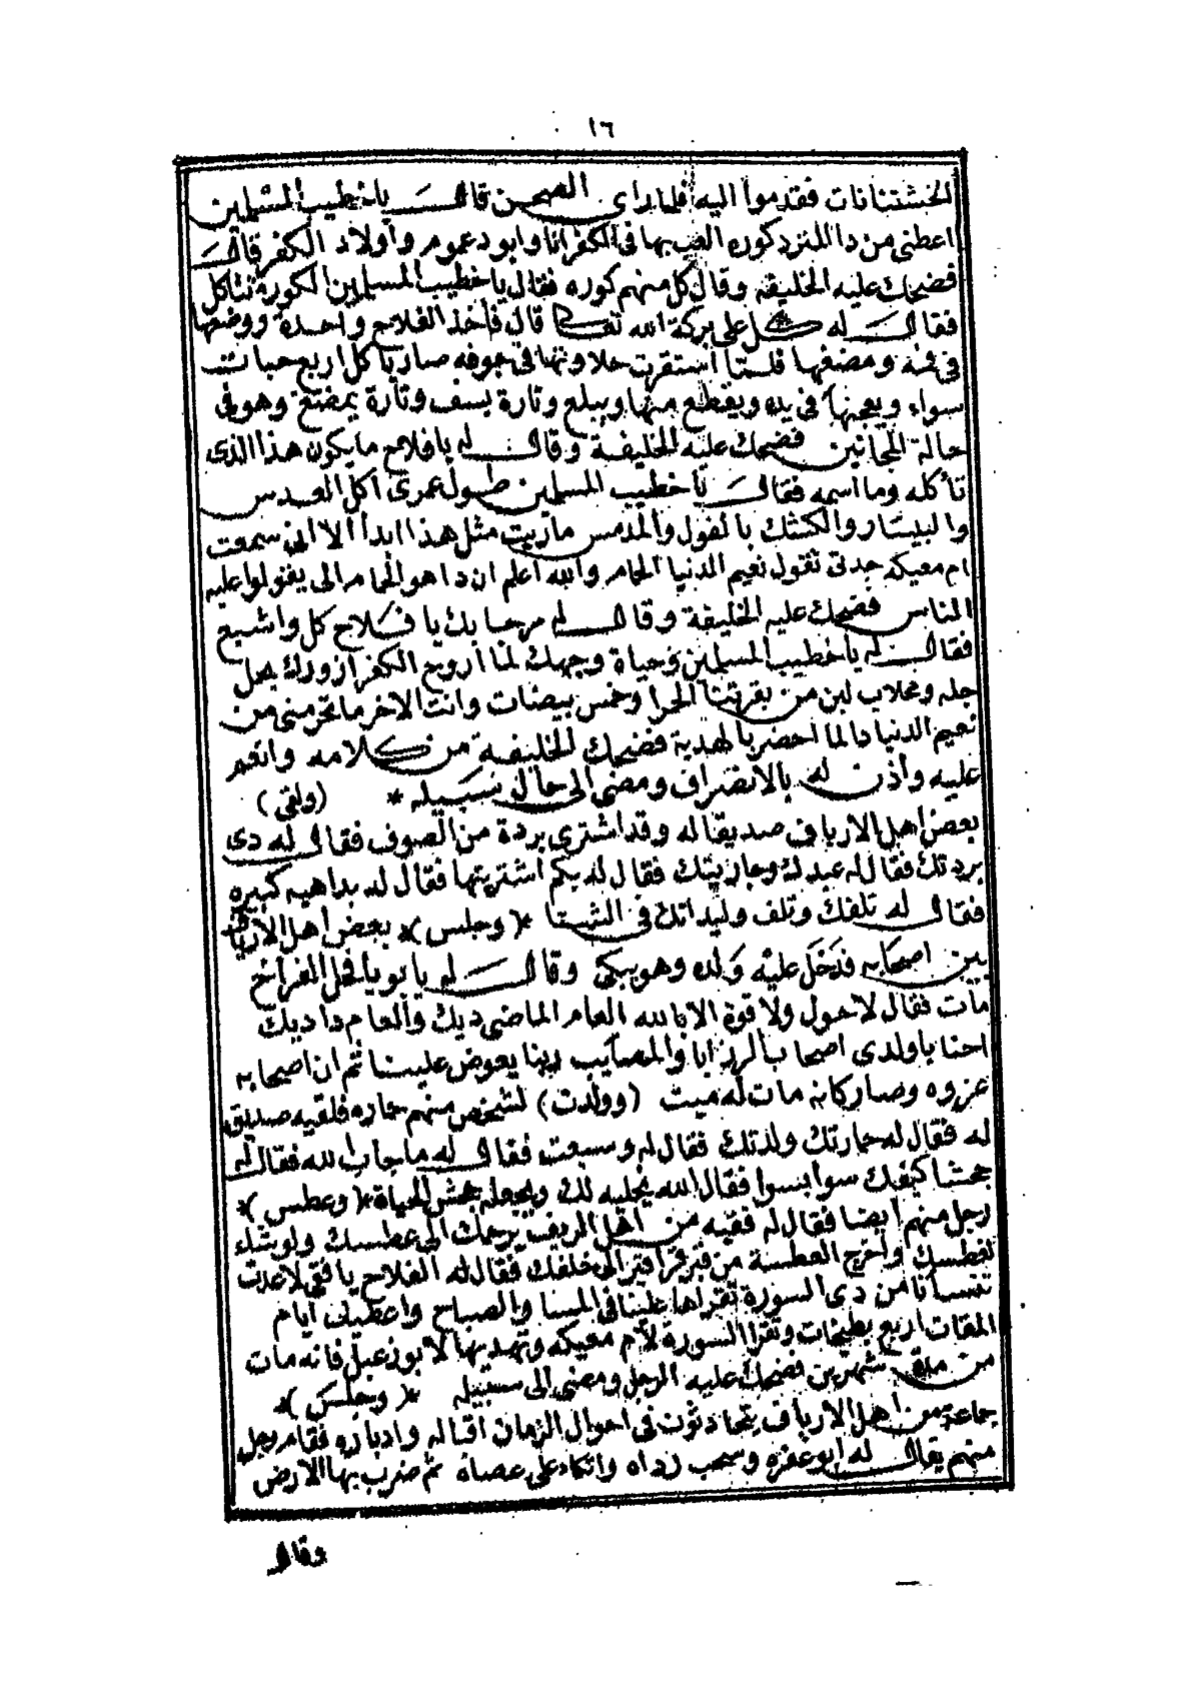 ١٦
الخشتنانات فقدموا اليه فلما راى الصحن قال يا خطيب المسلمين
اعطنى من دا اللنزد كوره العب بها فى الكفر انا وابو دعموم وأولاد الكفر قال
فضحك عليه الخليفه وقال كل منهم كوره فقال يا خطيب المسلمين الكورة تتاكل
فقال له كل على بركة الله تعالى قال فأخذ الفلاح واحدة ووضعها
فى فمه ومضغها فلمّا استقرت حلاوتها فى جوفه صار ياكل اربع حبات
سواء ويعجنها فى يده ويقطع منها ويبلع وتارة يسف وتارة يمضغ وهو فى
حالة المجانين فضحك عليه الخليفة وقال له يا فلاح ما يكون هذا الذى
تأكله وما اسمه فقال يا خطيب المسلمين طول عمرى اكل العدس
والبيسار والكشك بالفول والمدمس ماريت مثل هذا ابدا الا انى سمعت
ام معيكه جدتى تقول نعيم الدنيا الحمام والله اعلم ان دا هو الحمام الى يقولوا عليه
الناس فضحك عليه الخليفة وقال له مرحبا بك يا فلاح كل واشبع
فقال له يا خطيب المسلمين وحياة وجهك لما اروح الكفر ازورك بحل
جله ومحلاب لبن من بقرتنا الحرا وخمس بيضات وانت الاخر ما تحرمنى من
نعيم الدنيا دا لما احضر بالهدية فضحك الخليفة من كلامه وانعم
عليه وأذن له بالانصراف ومضى الى حال سبيله * (ولقى)
بعض اهل الارياف صديقا له وقد اشترى بردة من الصوف فقال له دى
بردتك فقال له عبدك وجاريتك فقال له بكم اشتريتها فقال له بداهيه كبيره
فقال له تلفك وتلف وليداتك فى الشتا *(وجلس)* بعض اهل الارياف
بين اصحابه فدخل عليه ولده وهو يبكى وقال له يا بويا فحل الفراخ
مات فقال لا حول ولا قوة الا بالله العام الماضى ديك والعام دا ديك
احنا يا ولدى اصحاب الرزايا والمصايب ربنا يعوض علينا ثم ان اصحابه
عزوه وصار كانه مات له ميت (وولدت) لشخص منهم حماره فلقيه صديق
له فقال له حمارتك ولدتك فقال له وسبعت فقال له ما جاب الله فقال له
جحشا كيفك سوا بسوا فقال الله يخليه لك ويجعله جحش الحياة *(وعطس)*
رجل منهم ايضا فقال له فقيه من اهل الريف يرحمك الى عطسك ولو شاء
لفطسك واخرج العطسة من خلفك فقال له الفلاح يا فقى لا عدت
تنسانا من دى السورة تقراها علينا فى المسا والصباح واعطيك ايام
المقات اربع بطيخات وتقرا السورة لام معيكه وتهديها لابو زعبل فانه مات
من مدة شهرين فضحك عليه الرجل ومضى الى سبيله *(وجلس)*
جماعة من اهل الارياف يتحادثون فى احوال الزمان اقباله وادباره فقام رجل
منهم يقال له ابو عفره وسحب رداه واتكاء على عصاه ثم ضرب بها الارض
وقال